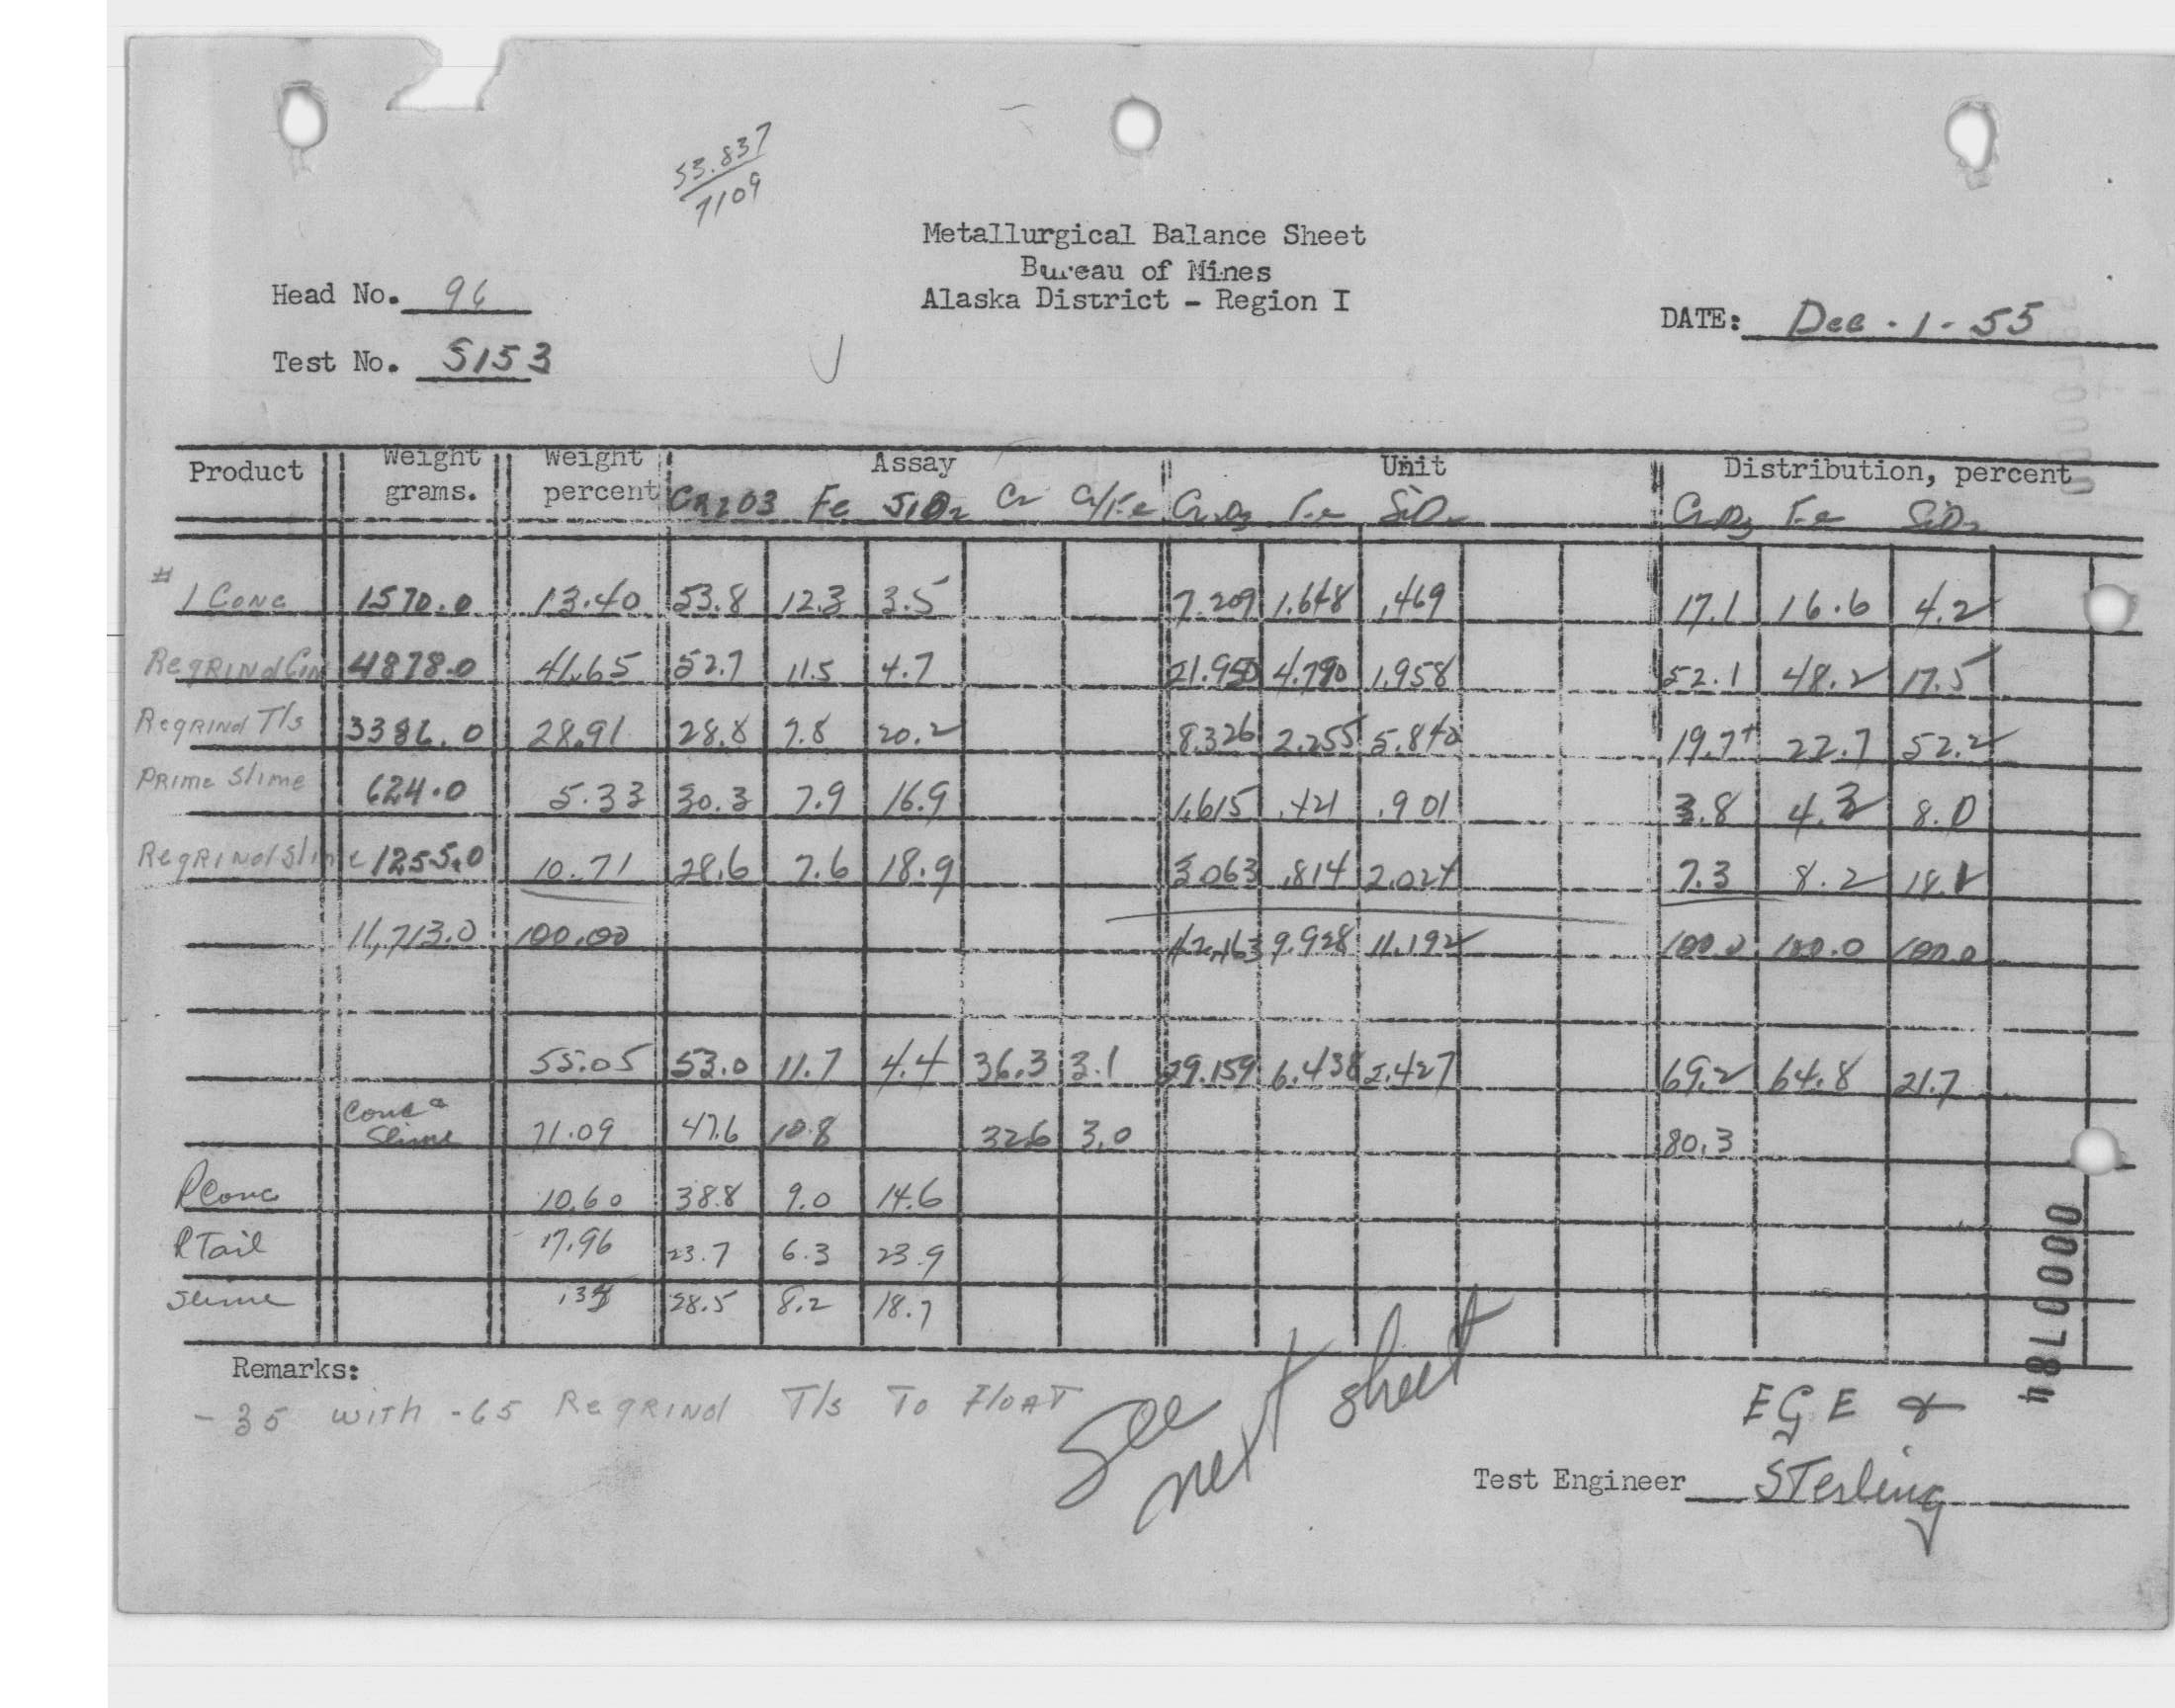 53.837
7109
Metallurgical Balance Sheet
Bureau of Mines
Alaska District - Region I
Head No. 96
DATE: Dec. 1 - 55
Test No. 5153
Product Weight grams. Weight percent Assay Unit Distribution, percent
CR2O3 Fe SiO2 Cr Cr/Fe Cr2O3 Fe SiO2 Cr2O3 Fe SiO2
#1 Conc 1570.0 13.40 53.8 12.3 3.5 7.209 1.648 .469 17.1 16.6 4.2
ReGRINd Con 4878.0 41.65 52.7 11.5 4.7 21.950 4.790 1.958 52.1 48.2 17.5
ReGRINd T/s 3386.0 28.91 28.8 7.8 20.2 8.326 2.255 5.840 19.7+ 22.7 52.2
PRIme Slime 624.0 5.33 30.3 7.9 16.9 1.615 .421 .901 3.8 4.3 8.0
ReGRINd Slime 1255.0 10.71 28.6 7.6 18.9 3.063 .814 2.024 7.3 8.2 18.1
11,713.0 100.00 42.163 9.928 11.192 100.0 100.0 100.0
55.05 53.0 11.7 4.4 36.3 3.1 29.159 6.438 2.427 69.2 64.8 21.7
Conc & Slime 71.09 47.6 10.8 32.6 3.0 80.3
R Conc 10.60 38.8 9.0 14.6
R Tail 17.96 23.7 6.3 23.9
Slime 28.5 8.2 18.7
Remarks:
-35 with -65 ReGRINd T/s To FloAT
See next sheet
0000784
EGE &
Test Engineer Sterling